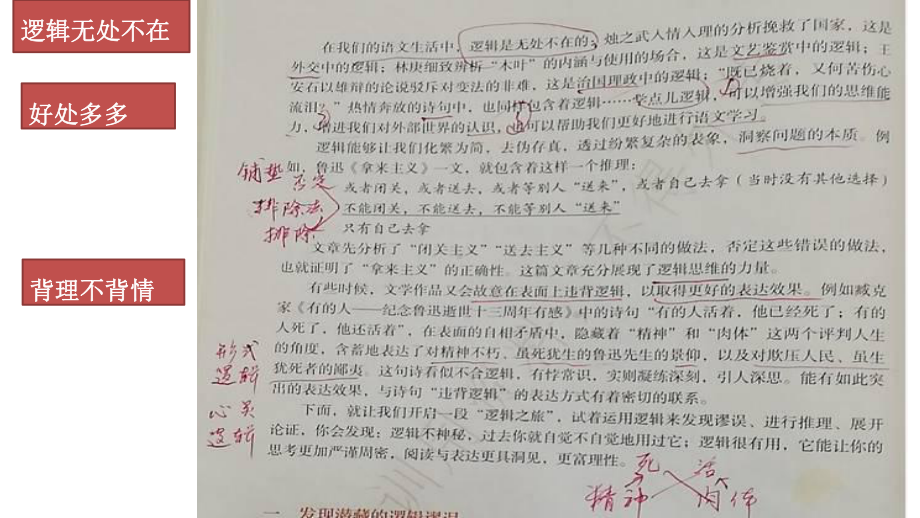 逻辑无处不在
好处多多
背理不背情
在我们的语文生活中，逻辑是无处不在的：烛之武人情入理的分析挽救了国家，这是
外交中的逻辑；林庚细致辨析“木叶”的内涵与使用的场合，这是文艺鉴赏中的逻辑；王
安石以雄辩的论说驳斥对变法的非难，这是治国理政中的逻辑；“既已烧着，又何苦伤心
流泪？”热情奔放的诗句中，也同样包含着逻辑……学点儿逻辑，可以增强我们的思维能
力，增进我们对外部世界的认识，也可以帮助我们更好地进行语文学习。
逻辑能够让我们化繁为简，去伪存真，透过纷繁复杂的表象，洞察问题的本质。例
如，鲁迅《拿来主义》一文，就包含着这样一个推理：
或者闭关，或者送去，或者等别人“送来”，或者自己去拿（当时没有其他选择）
不能闭关，不能送去，不能等别人“送来”
只有自己去拿
铺垫
否定
排除法
排除
文章先分析了“闭关主义”“送去主义”等几种不同的做法，否定这些错误的做法，
也就证明了“拿来主义”的正确性。这篇文章充分展现了逻辑思维的力量。
有些时候，文学作品又会故意在表面上违背逻辑，以取得更好的表达效果。例如臧克
家《有的人——纪念鲁迅逝世十三周年有感》中的诗句“有的人活着，他已经死了；有的
人死了，他还活着”，在表面的自相矛盾中，隐藏着“精神”和“肉体”这两个评判人生
的角度，含蓄地表达了对精神不朽、虽死犹生的鲁迅先生的景仰，以及对欺压人民、虽生
犹死者的鄙夷。这句诗看似不合逻辑，有悖常识，实则凝练深刻，引人深思。能有如此突
出的表达效果，与诗句“违背逻辑”的表达方式有着密切的联系。
形式
逻辑
心灵
逻辑
下面，就让我们开启一段“逻辑之旅”，试着运用逻辑来发现谬误、进行推理、展开
论证，你会发现：逻辑不神秘，过去你就自觉不自觉地用过它；逻辑很有用，它能让你的
思考更加严谨周密，阅读与表达更具洞见，更富理性。
死 活
精神 肉体
一 发现潜藏的逻辑谬误